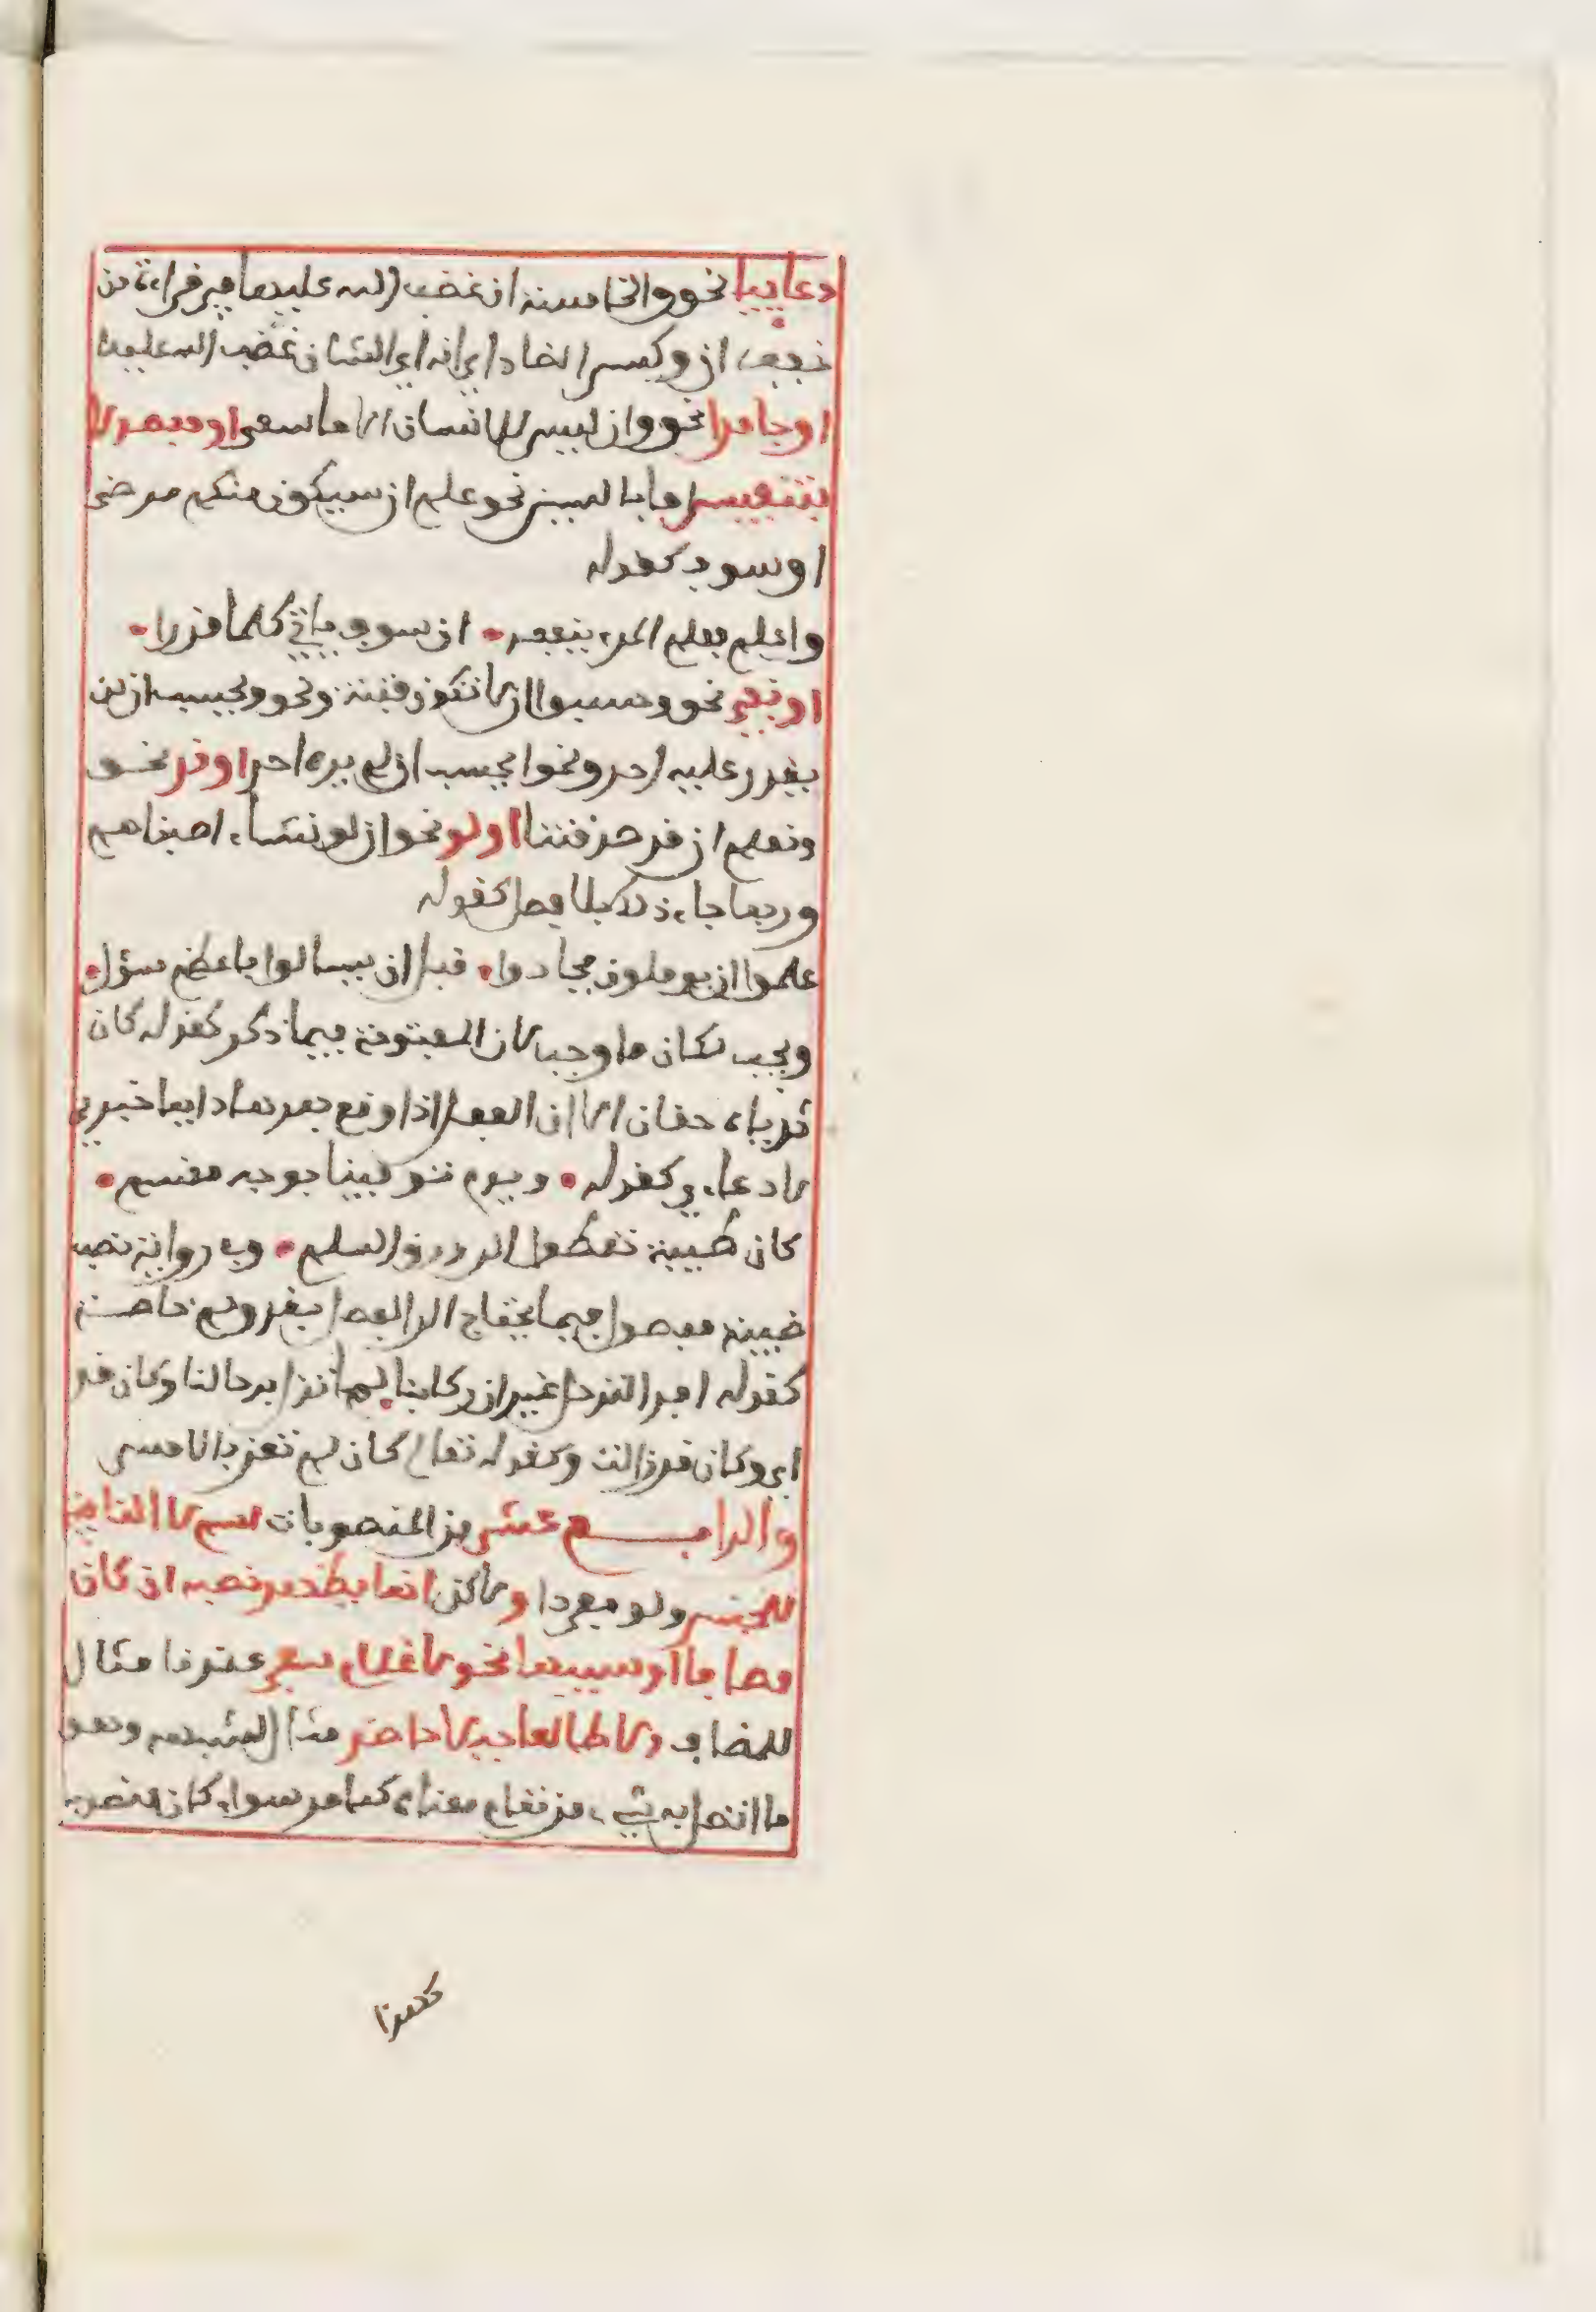 دعاييا نحو والخامسة ان غضب الله عليها في قراءة من
خفف ان وكسر الضاد اي انه اي الشان غضب الله عليها
او جامدا نحو وان ليس للانسان الا ما سعى او مفصولا
بتنفيس اما بالسين نحو علم ان سيكون منكم مرضى
او سوف كقوله
واعلم فعلم المرء ينفعه • ان سوف ياتي كلما قدرا •
او نفي نحو وحسبوا ان لا تكون فتنة ونحو ايحسب ان لن
يقدر عليه احد ونحو ايحسب ان لم يره احد او قد نحو
ونعلم ان قد صدقتنا او لو نحو ان لو نشاء اصبناهم
وربما جاء ذلك بلا فصل كقوله
علموا ان يوملون فجادوا • قبل ان يسالوا باعظم سؤل •
ويجب لكان ما وجب لان المفتوحة فيما ذكر كقوله كان
ثدياه حقان الا ان الفعل اذا وقع بعدها دايما خبري
لا دعاءي كقوله • ويوم توافينا بوجه مقسم •
كان ظبية تعطوا الى وارق السلم • وفي رواية نصب
ظبية مفصول فيما يحتاج الى الفصل بقد ولم خاصة
كقوله افد الترحل غير ان ركابنا لما تزل برحالنا وكان قد
اي وكان قد زالت وكقوله تعالى كان لم تغن بالامس
والرابع عشر من المنصوبات اسم لا النافية
للجنس ولو مفردا ولاكن انما يظهر نصبه ان كان
مضافا او شبيهه نحو لا غلام سفر عندنا مثال
للمضاف ولا طالعا جبلا حاضر مثال لشبيهه وهو
ما اتصل به شيء من تمام معناه كما مر سواء كان منصوبه